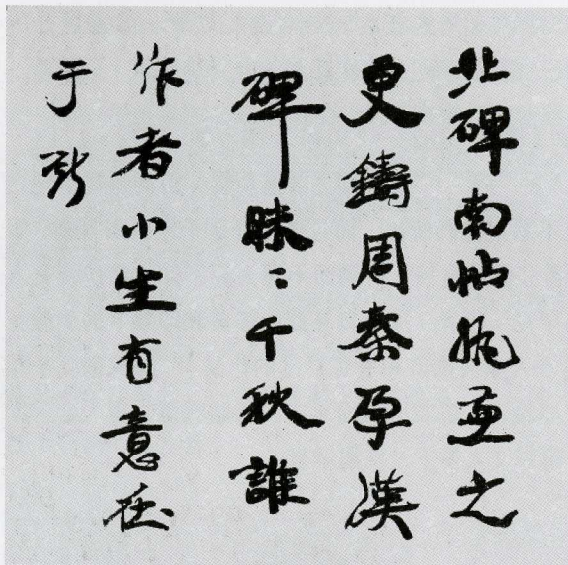 北碑南帖孰兼之
更鑄周秦孕漢
碑昧〻千秋誰
作者小生有意在
于斯